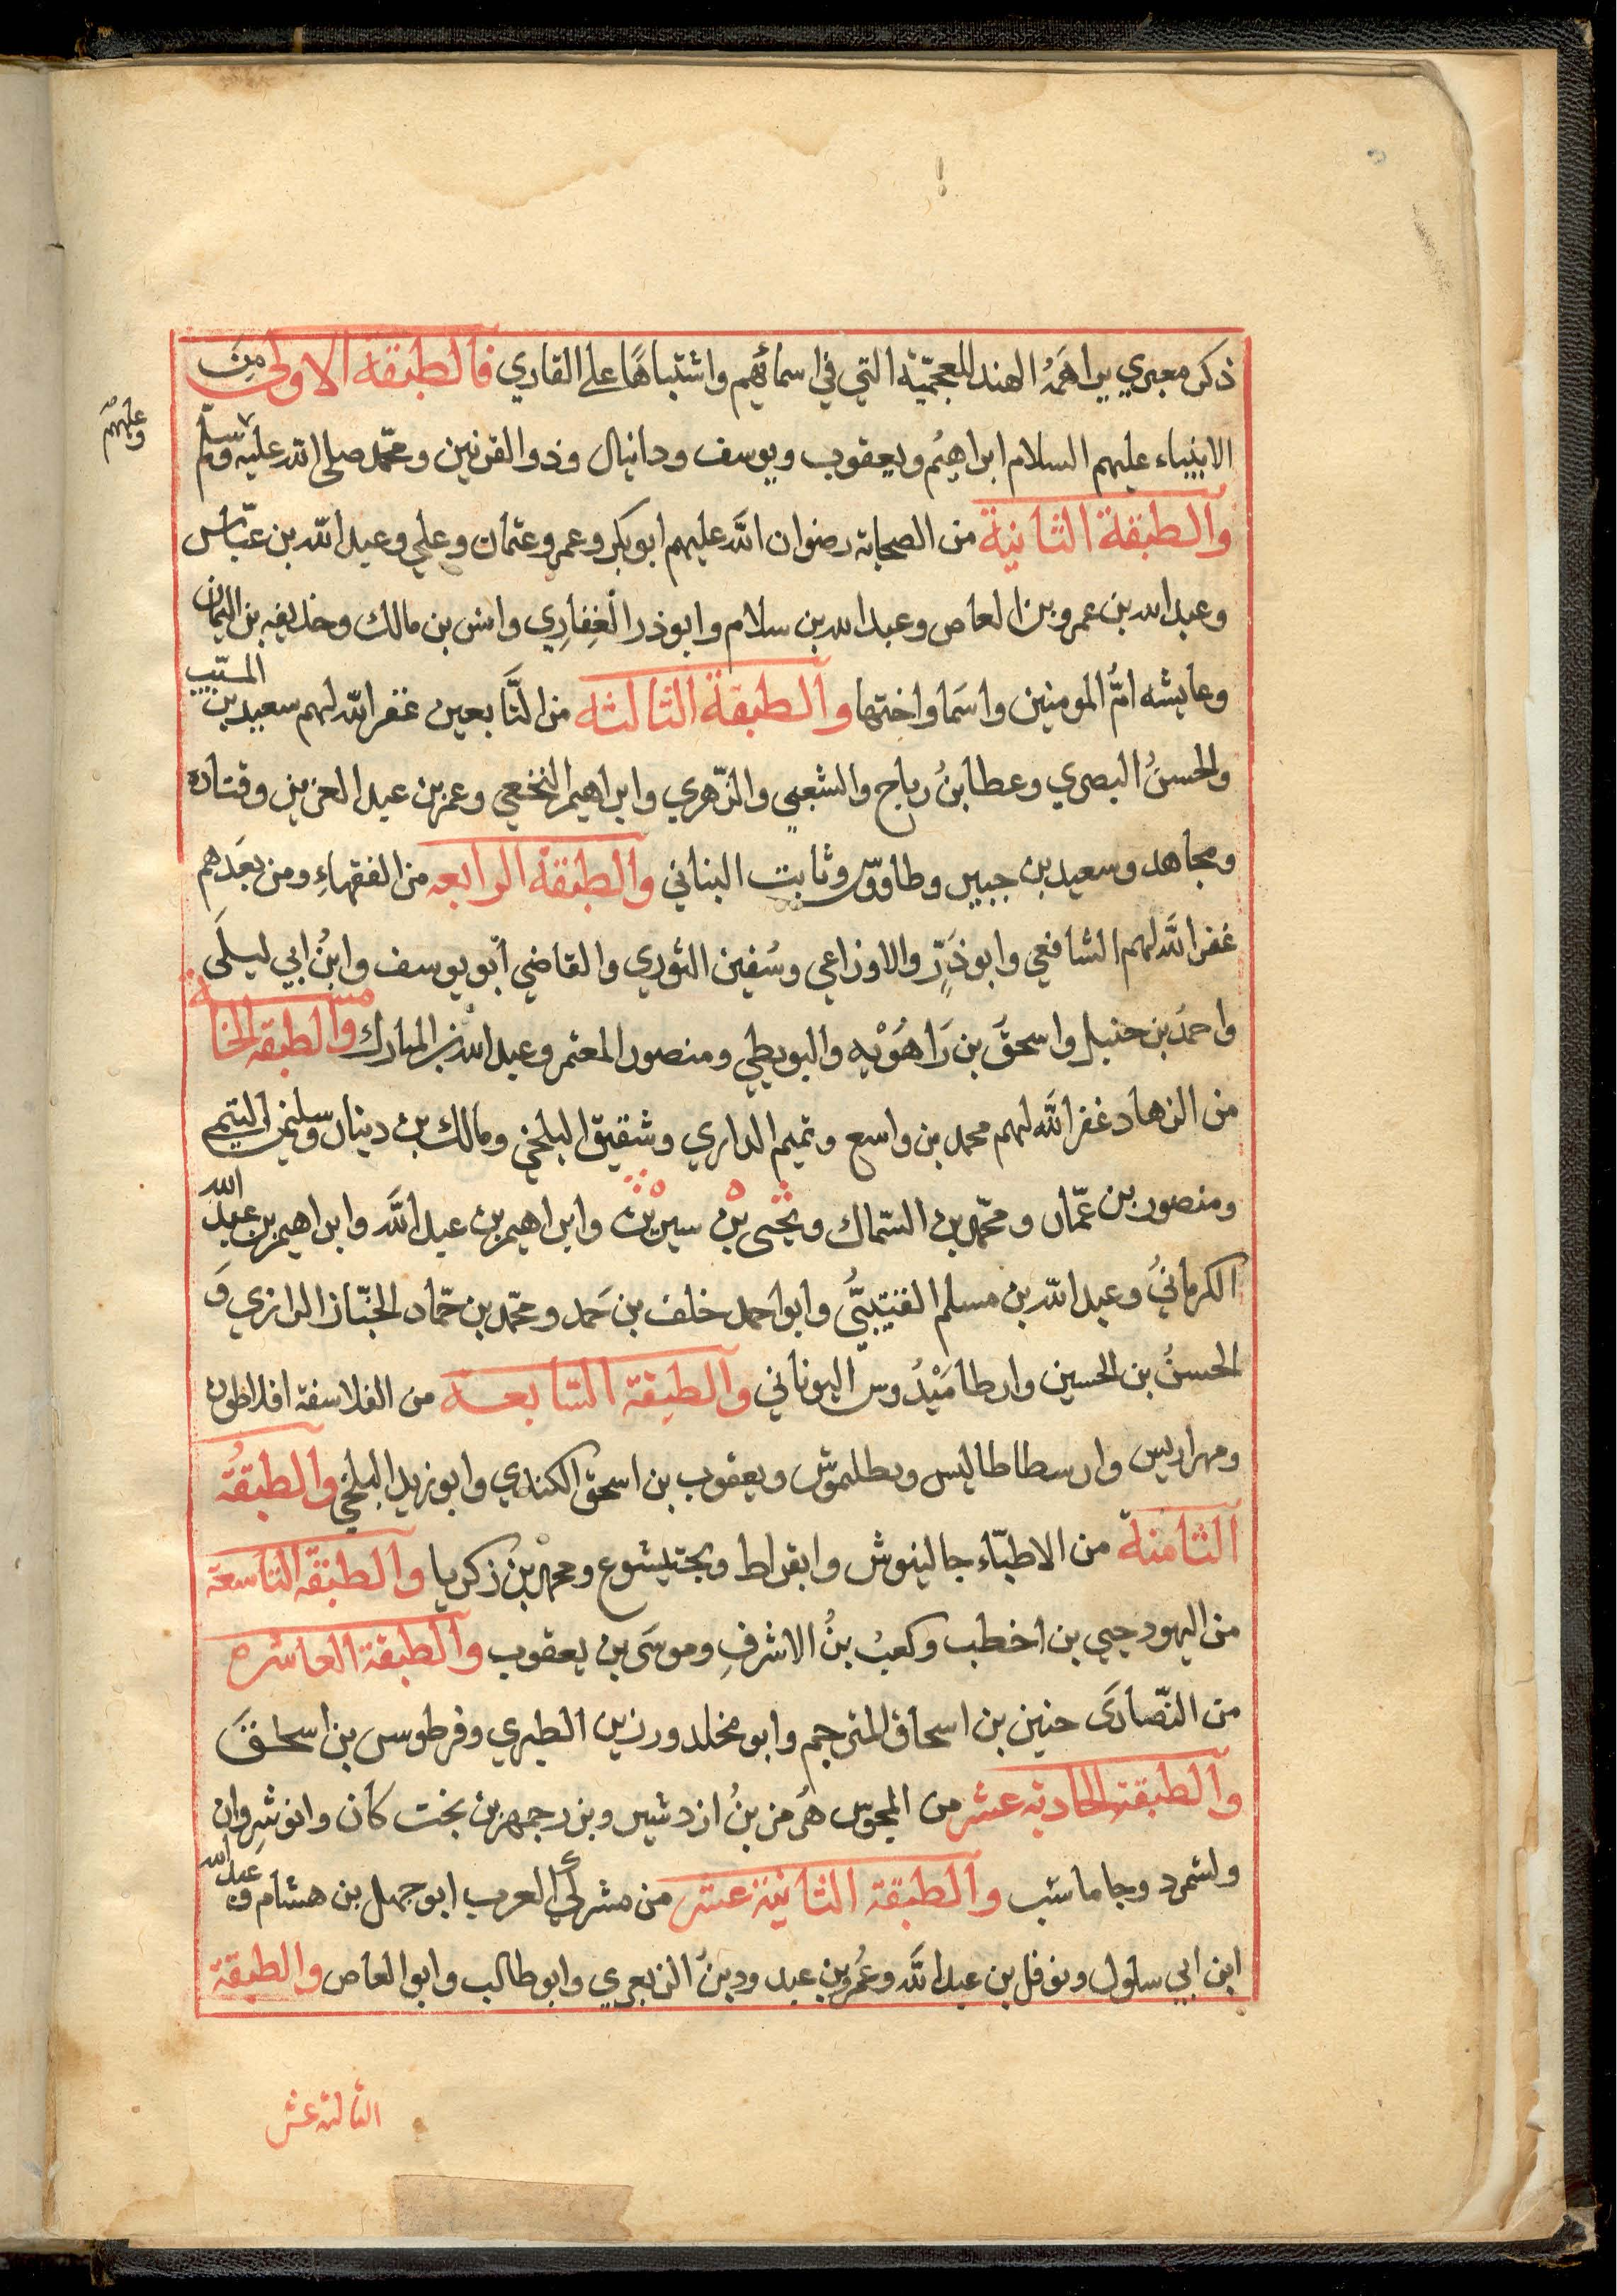 ذكر معبري براهمه الهند للعجميّة التي في اسمائهم واشتباهها على القاري فالطبقة الاولى مِنَ
الانبياء عليهم السلام ابراهيمُ ويعقوب ويوسف ودانيال وذو القرنين ومحمّد صلى الله عليه وسلم
وعليهم
والطبقة الثانية من الصحابة رضوان اللّه عليهم ابو بكر وعمر وعثمان وعلي وعبد اللّه بن عبّاس
وعبد الله بن عمرو بن العاص وعبد الله بن سلام وابو ذر الغِفارِي وانس بن مالك وحذيفه بن اليمان
وعايشه امُّ المومنين واسَما واختها والطبقة الثالثه من التَّابعين غفر اللّه لهم سعيد بن المسيّب
والحسنُ البصري وعطا بنُ رباح والشعبي والزّهري وابراهيم النخعي وعمر بن عبد العزيز وقتاده
ومجاهد وسعيد بن جبير وطاووس وثابت البناني والطبقة الرابعه من الفقهاءِ ومن بعَدهم
غفر اللَّه لهم الشافعي وابو ذَرّ والاوزاعي وسُفين الثوري والقاضي أبو يوسف وابنُ ابي ليلَى
واحمدُ بن حنبل واسحقَ بن رَاهُوْيه والبويطي ومنصور المعتمر وعبد اللّه بن المبارك والطبقه الخامسة
من الزهاد غفر اللَّه لهم محمد بن واسع وتميم الداري وشقيق البلخي ومالك بن دينار وسليمن التيمي
ومنصور بن عمّار ومحمّد بن السّماك ويحيى بن سيرين وابراهيم بن عبد اللَّه وابراهيم بن عبد الله
الكرمانيُ وعبد اللّه بن مسلم القتيبيُّ وابو احمد خلف بن حَمد ومحمّد بن حمّاد الخبّاز الرازي وَ
الحسنُ بن الحسين وارطاميْدُوس اليوناني والطبقة السّابعة من الفلاسفة افلاطون
ومهراريس وارسطاطاليس وبطليموس ويعقوب بن اسحق الكندي وابو زيد البلخي والطبقُة
الثامنة من الاطبّاء جالينوش وابقراط وبختيشوع ومحمّد بن زكريا والطبقة التاسعة
من اليهود حيي بن اخطب وكعبُ بنُ الاشرفِ وموسَى بن يعقوب والطبقة العاشره
من النّصارَى حنين بن اسحاق المترجم وابو مخلد ورزين الطبري وفرطوس بن اسحاقَ
والطبقة الحادية عشر من المجوس هُرمز بنُ ازدشير وبزرجمهر بن بخت كان وانوشِروان
ولشمرد وجاماسب والطبقة الثانية عشر من مشركي العرب ابو جهل بن هشام وعبد الله
ابن ابي سلول ونوفل بن عبد اللَّه وعَمُرو بن عبد ود بنُ الزبعري وابو طالب وابو العاص والطبقة
الثالثة عشر